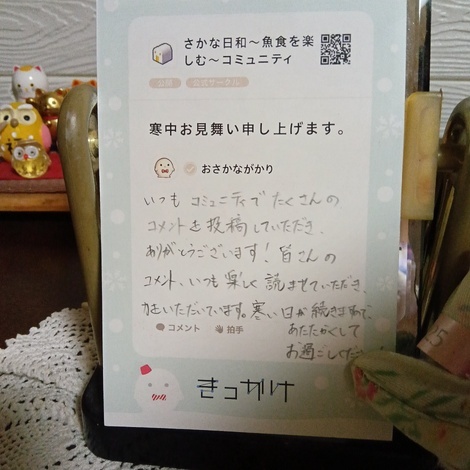 さかな日和〜魚食を楽
しむ〜コミュニティ
公開
公式サークル
寒中お見舞い申し上げます。
おさかながかり
いつも コミュニティで たくさんの
コメントを投稿していただき、
ありがとうございます！皆さんの
コメント、いつも楽しく読ませていただき、
力をいただいています。寒い日が続きますので、
あたたかくして
お過ごしください！
コメント 拍手
きっかけ
25